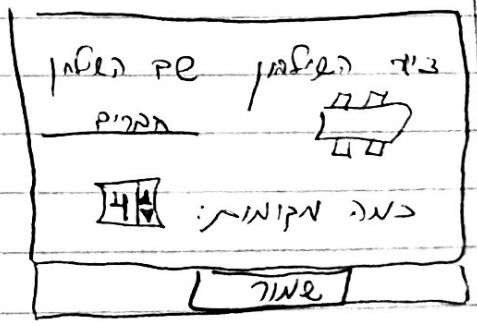 ציור השולחן שם השולחן
חברים
כמה מקומות: 4
שמור